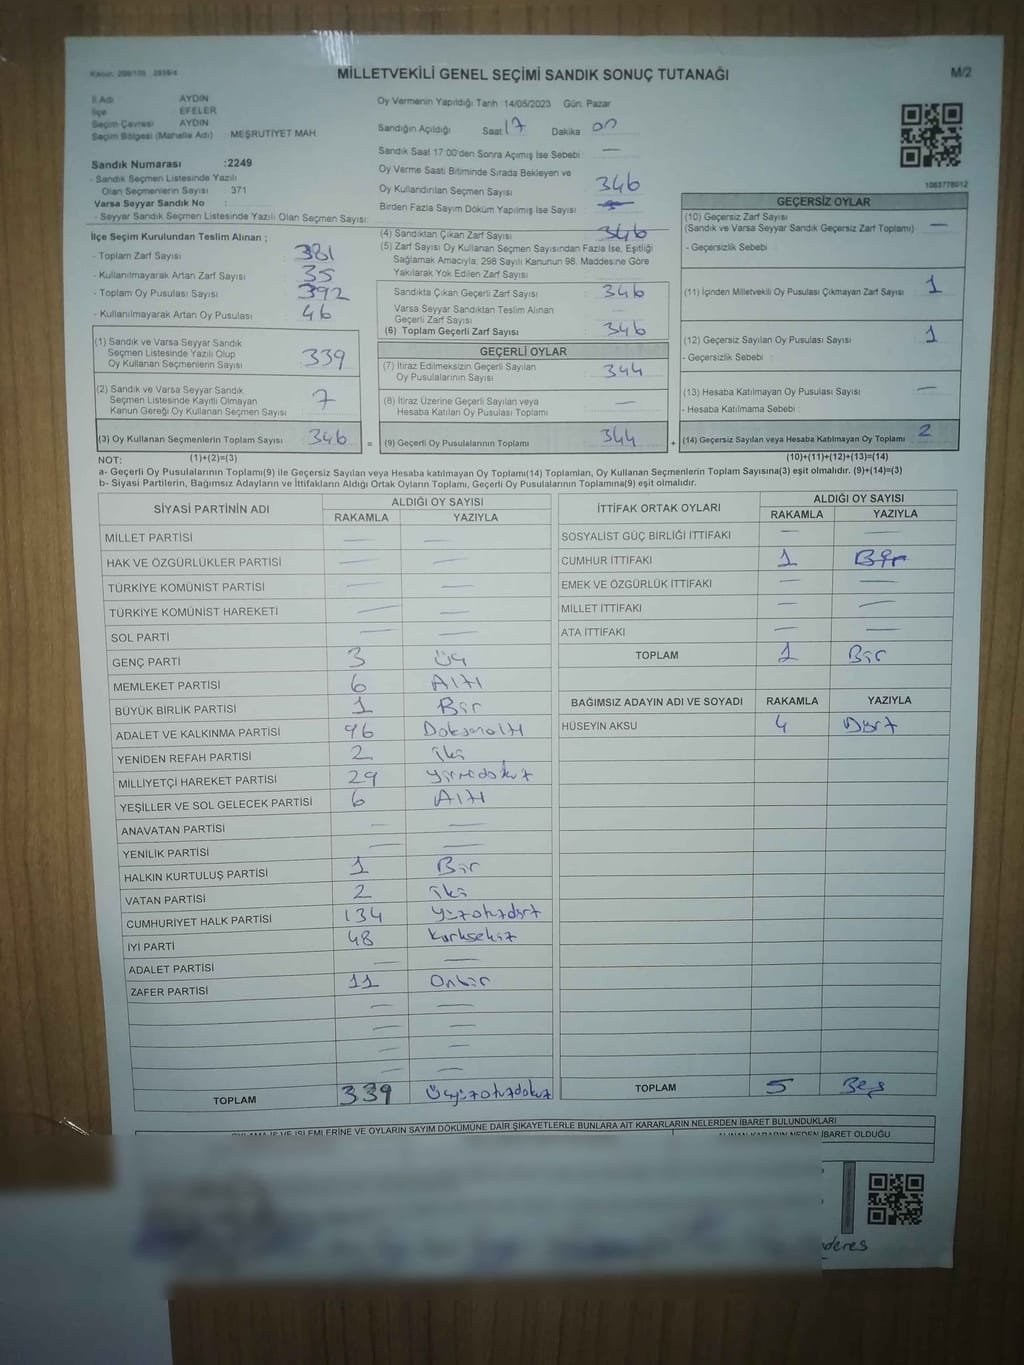 MİLLETVEKİLİ GENEL SEÇİMİ SANDIK SONUÇ TUTANAĞI
M/2
İl Adı AYDIN
İlçe EFELER
Seçim Çevresi AYDIN
Seçim Bölgesi (Mahalle Adı) MEŞRUTİYET MAH.
Sandık Numarası :2249
- Sandık Seçmen Listesinde Yazılı
Olan Seçmenlerin Sayısı 371
Varsa Seyyar Sandık No :
- Seyyar Sandık Seçmen Listesinde Yazılı Olan Seçmen Sayısı:
İlçe Seçim Kurulundan Teslim Alınan ;
- Toplam Zarf Sayısı 381
- Kullanılmayarak Artan Zarf Sayısı 35
- Toplam Oy Pusulası Sayısı 392
- Kullanılmayarak Artan Oy Pusulası 46
(1) Sandık ve Varsa Seyyar Sandık
Seçmen Listesinde Yazılı Olup
Oy Kullanan Seçmenlerin Sayısı 339
(2) Sandık ve Varsa Seyyar Sandık
Seçmen Listesinde Kayıtlı Olmayan
Kanun Gereği Oy Kullanan Seçmen Sayısı 7
(3) Oy Kullanan Seçmenlerin Toplam Sayısı 346
Oy Vermenin Yapıldığı Tarih 14/05/2023 Gün: Pazar
Sandığın Açıldığı Saat 17 Dakika 00
Sandık Saat 17:00'den Sonra Açımış İse Sebebi : —
Oy Verme Saati Bitiminde Sırada Bekleyen ve
Oy Kullandırılan Seçmen Sayısı 346
Birden Fazla Sayım Döküm Yapılmış İse Sayısı
(4) Sandıktan Çıkan Zarf Sayısı 346
(5) Zarf Sayısı Oy Kullanan Seçmen Sayısından Fazla İse, Eşitliği
Sağlamak Amacıyla, 298 Sayılı Kanunun 98. Maddesine Göre
Yakılarak Yok Edilen Zarf Sayısı :
Sandıkta Çıkan Geçerli Zarf Sayısı 346
Varsa Seyyar Sandıktan Teslim Alınan
Geçerli Zarf Sayısı
(6) Toplam Geçerli Zarf Sayısı 346
GEÇERLİ OYLAR
(7) İtiraz Edilmeksizin Geçerli Sayılan
Oy Pusulalarının Sayısı 344
(8) İtiraz Üzerine Geçerli Sayılan veya
Hesaba Katılan Oy Pusulası Toplamı —
= (9) Geçerli Oy Pusulalarının Toplamı 344
1083778012
GEÇERSİZ OYLAR
(10) Geçersiz Zarf Sayısı
(Sandık ve Varsa Seyyar Sandık Geçersiz Zarf Toplamı) —
- Geçersizlik Sebebi
(11) İçinden Milletvekili Oy Pusulası Çıkmayan Zarf Sayısı 1
(12) Geçersiz Sayılan Oy Pusulası Sayısı 1
- Geçersizlik Sebebi :
(13) Hesaba Katılmayan Oy Pusulası Sayısı —
- Hesaba Katılmama Sebebi :
+ (14) Geçersiz Sayılan veya Hesaba Katılmayan Oy Toplamı 2
NOT: (1)+(2)=(3) (10)+(11)+(12)+(13)=(14)
a- Geçerli Oy Pusulalarının Toplamı(9) ile Geçersiz Sayılan veya Hesaba katılmayan Oy Toplamı(14) Toplamları, Oy Kullanan Seçmenlerin Toplam Sayısına(3) eşit olmalıdır. (9)+(14)=(3)
b- Siyasi Partilerin, Bağımsız Adayların ve İttifakların Aldığı Ortak Oyların Toplamı, Geçerli Oy Pusulalarının Toplamına(9) eşit olmalıdır.
SİYASİ PARTİNİN ADI ALDIĞI OY SAYISI
RAKAMLA YAZIYLA
MİLLET PARTİSİ — —
HAK VE ÖZGÜRLÜKLER PARTİSİ — —
TÜRKİYE KOMÜNİST PARTİSİ — —
TÜRKİYE KOMÜNİST HAREKETİ — —
SOL PARTİ — —
GENÇ PARTİ 3 Üç
MEMLEKET PARTİSİ 6 Altı
BÜYÜK BİRLİK PARTİSİ 1 Bir
ADALET VE KALKINMA PARTİSİ 96 Doksanaltı
YENİDEN REFAH PARTİSİ 2 iki
MİLLİYETÇİ HAREKET PARTİSİ 29 Yirmidokuz
YEŞİLLER VE SOL GELECEK PARTİSİ 6 Altı
ANAVATAN PARTİSİ — —
YENİLİK PARTİSİ — —
HALKIN KURTULUŞ PARTİSİ 1 Bir
VATAN PARTİSİ 2 iki
CUMHURİYET HALK PARTİSİ 134 Yüzotuzdört
İYİ PARTİ 48 Kırksekiz
ADALET PARTİSİ — —
ZAFER PARTİSİ 11 Onbir
— —
— —
— —
— —
TOPLAM 339 Üçyüzotuzdokuz
İTTİFAK ORTAK OYLARI ALDIĞI OY SAYISI
RAKAMLA YAZIYLA
SOSYALİST GÜÇ BİRLİĞİ İTTİFAKI — —
CUMHUR İTTİFAKI 1 Bir
EMEK VE ÖZGÜRLÜK İTTİFAKI — —
MİLLET İTTİFAKI — —
ATA İTTİFAKI — —
TOPLAM 1 Bir
BAĞIMSIZ ADAYIN ADI VE SOYADI RAKAMLA YAZIYLA
HÜSEYİN AKSU 4 Dört
TOPLAM 5 Beş
VE İŞLEMLERİNE VE OYLARIN SAYIM DÖKÜMÜNE DAİR ŞİKAYETLERLE BUNLARA AİT KARARLARIN NELERDEN İBARET BULUNDUKLARI
ALINAN KARARIN NEDEN İBARET OLDUĞU
deres